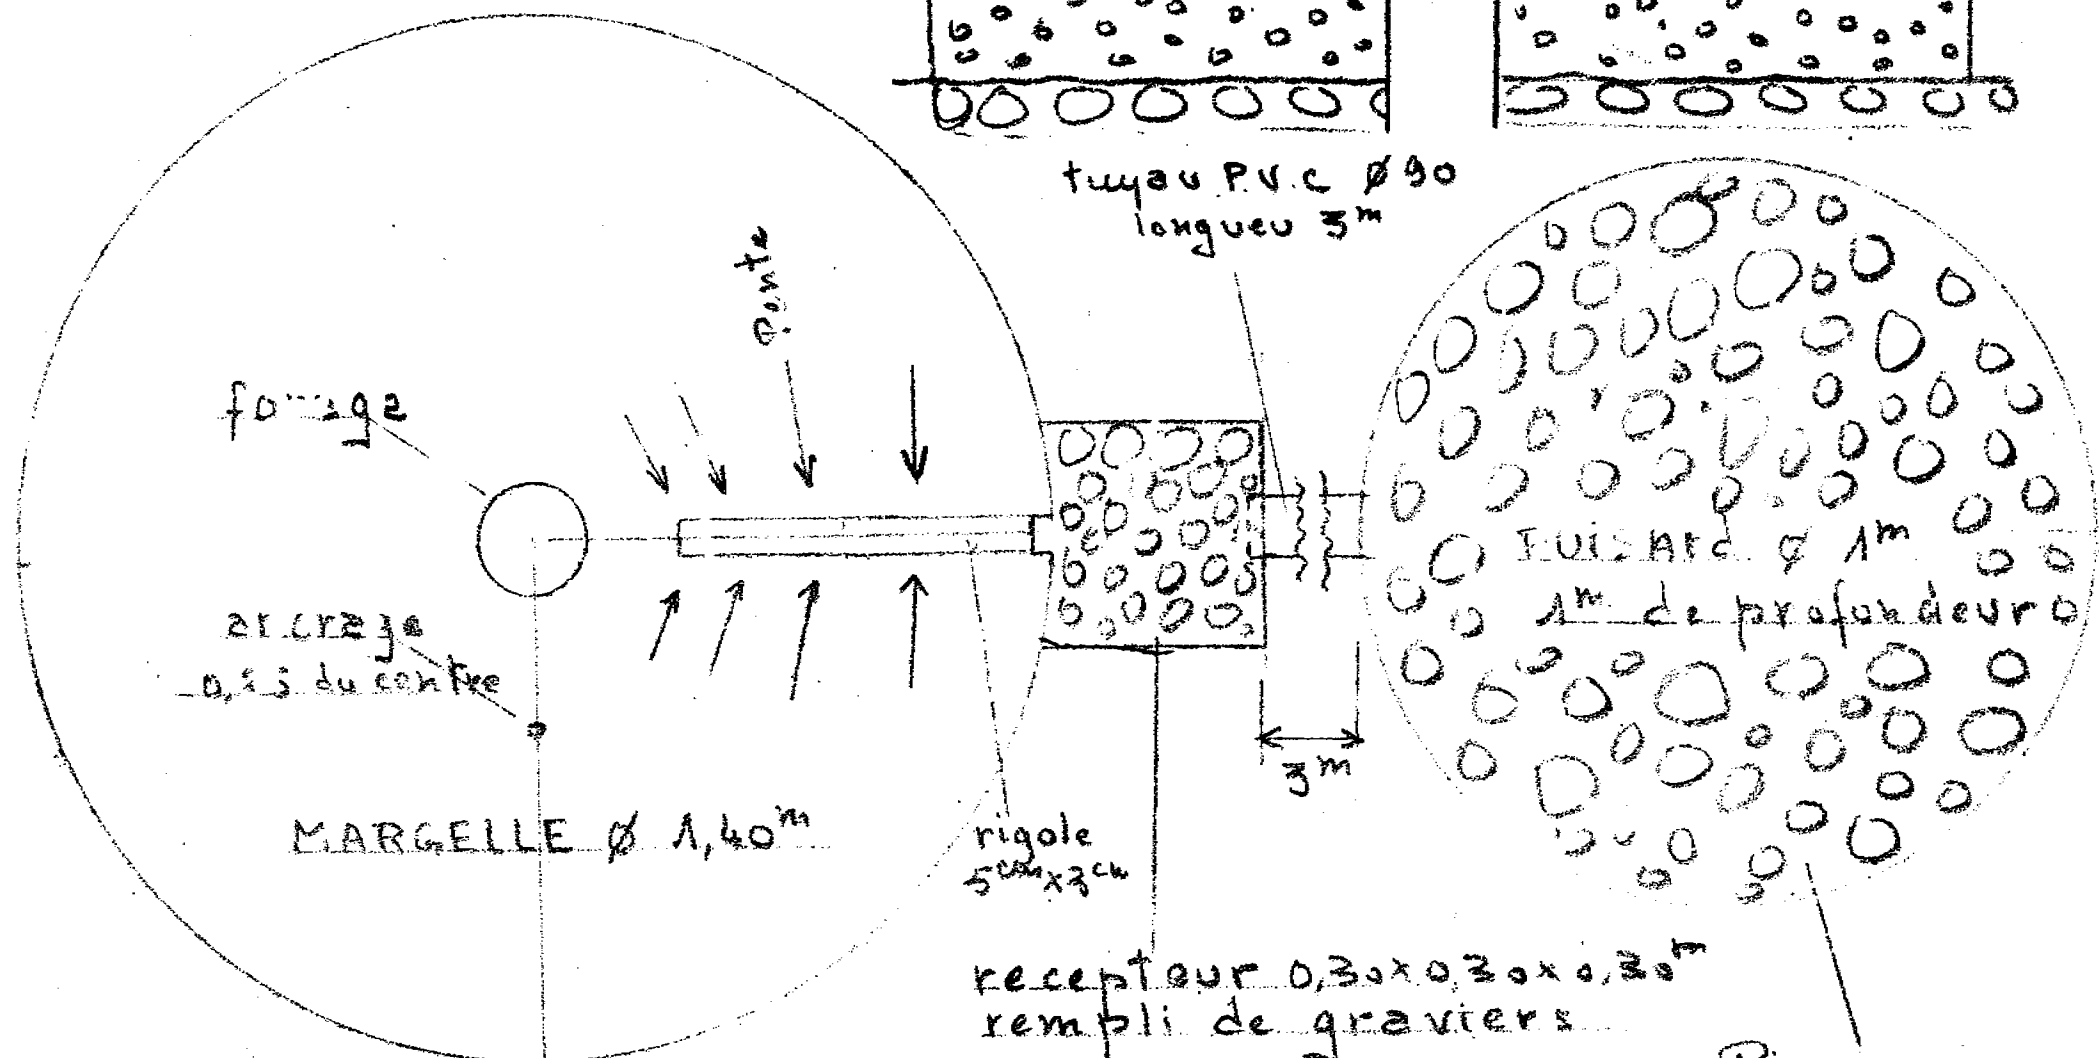 tuyau P.V.C Ø 90
longueu 3m
Pente
forage
ancrage
du centre
MARGELLE Ø 1,40m
rigole
5cm x 3cm
3m
PUISARD Ø 1m
1m de profondeur
recepteur 0,30x0,30x0,30m
rempli de graviers